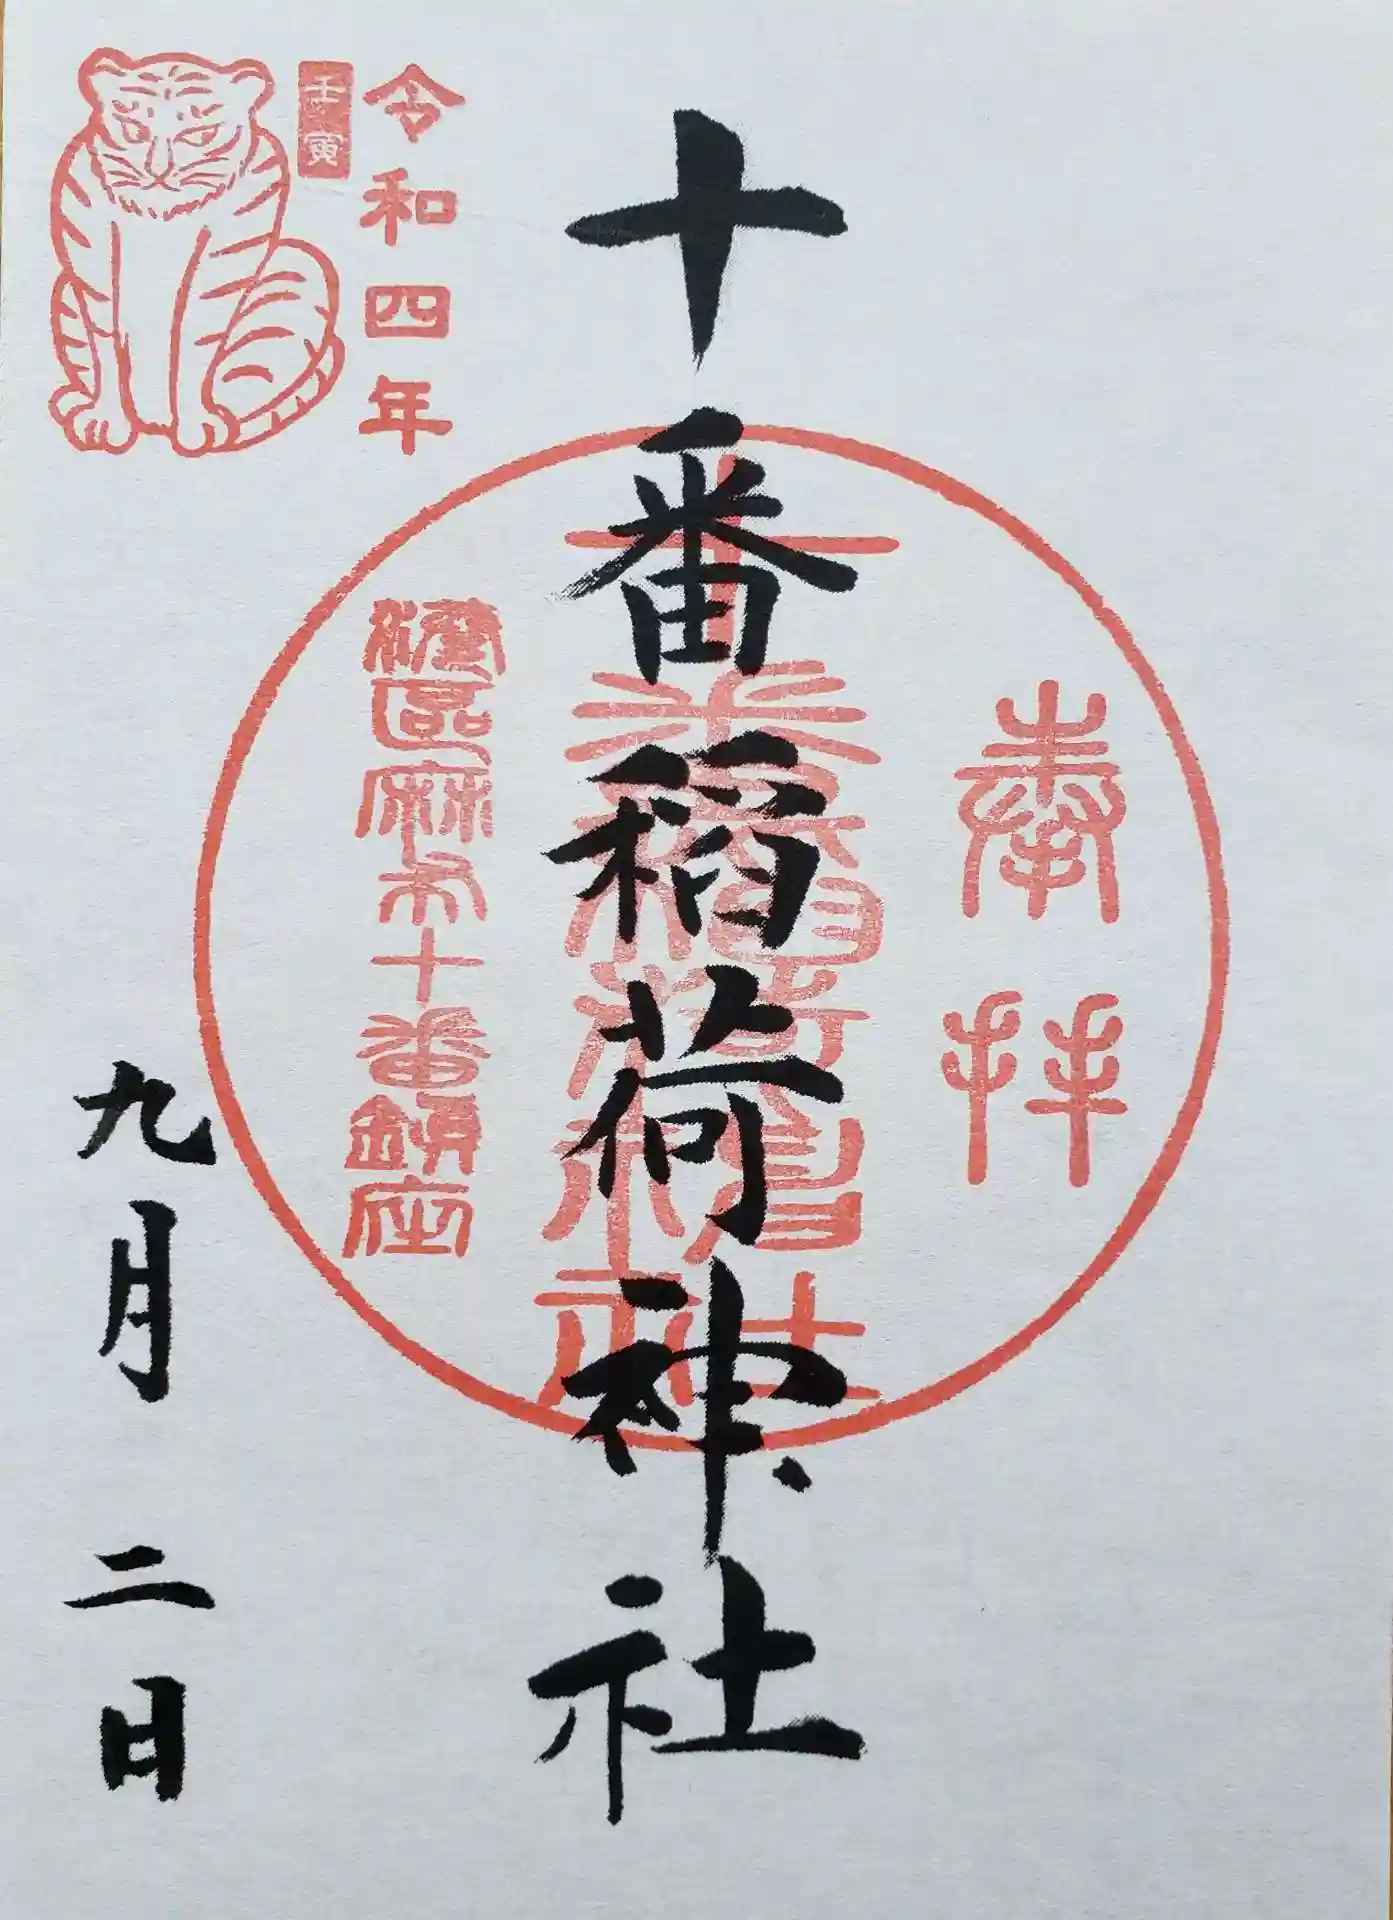 奉拝
十番稲荷神社
十番稲荷神社
港區麻布十番鎮座
令和四年
壬寅
九月二日